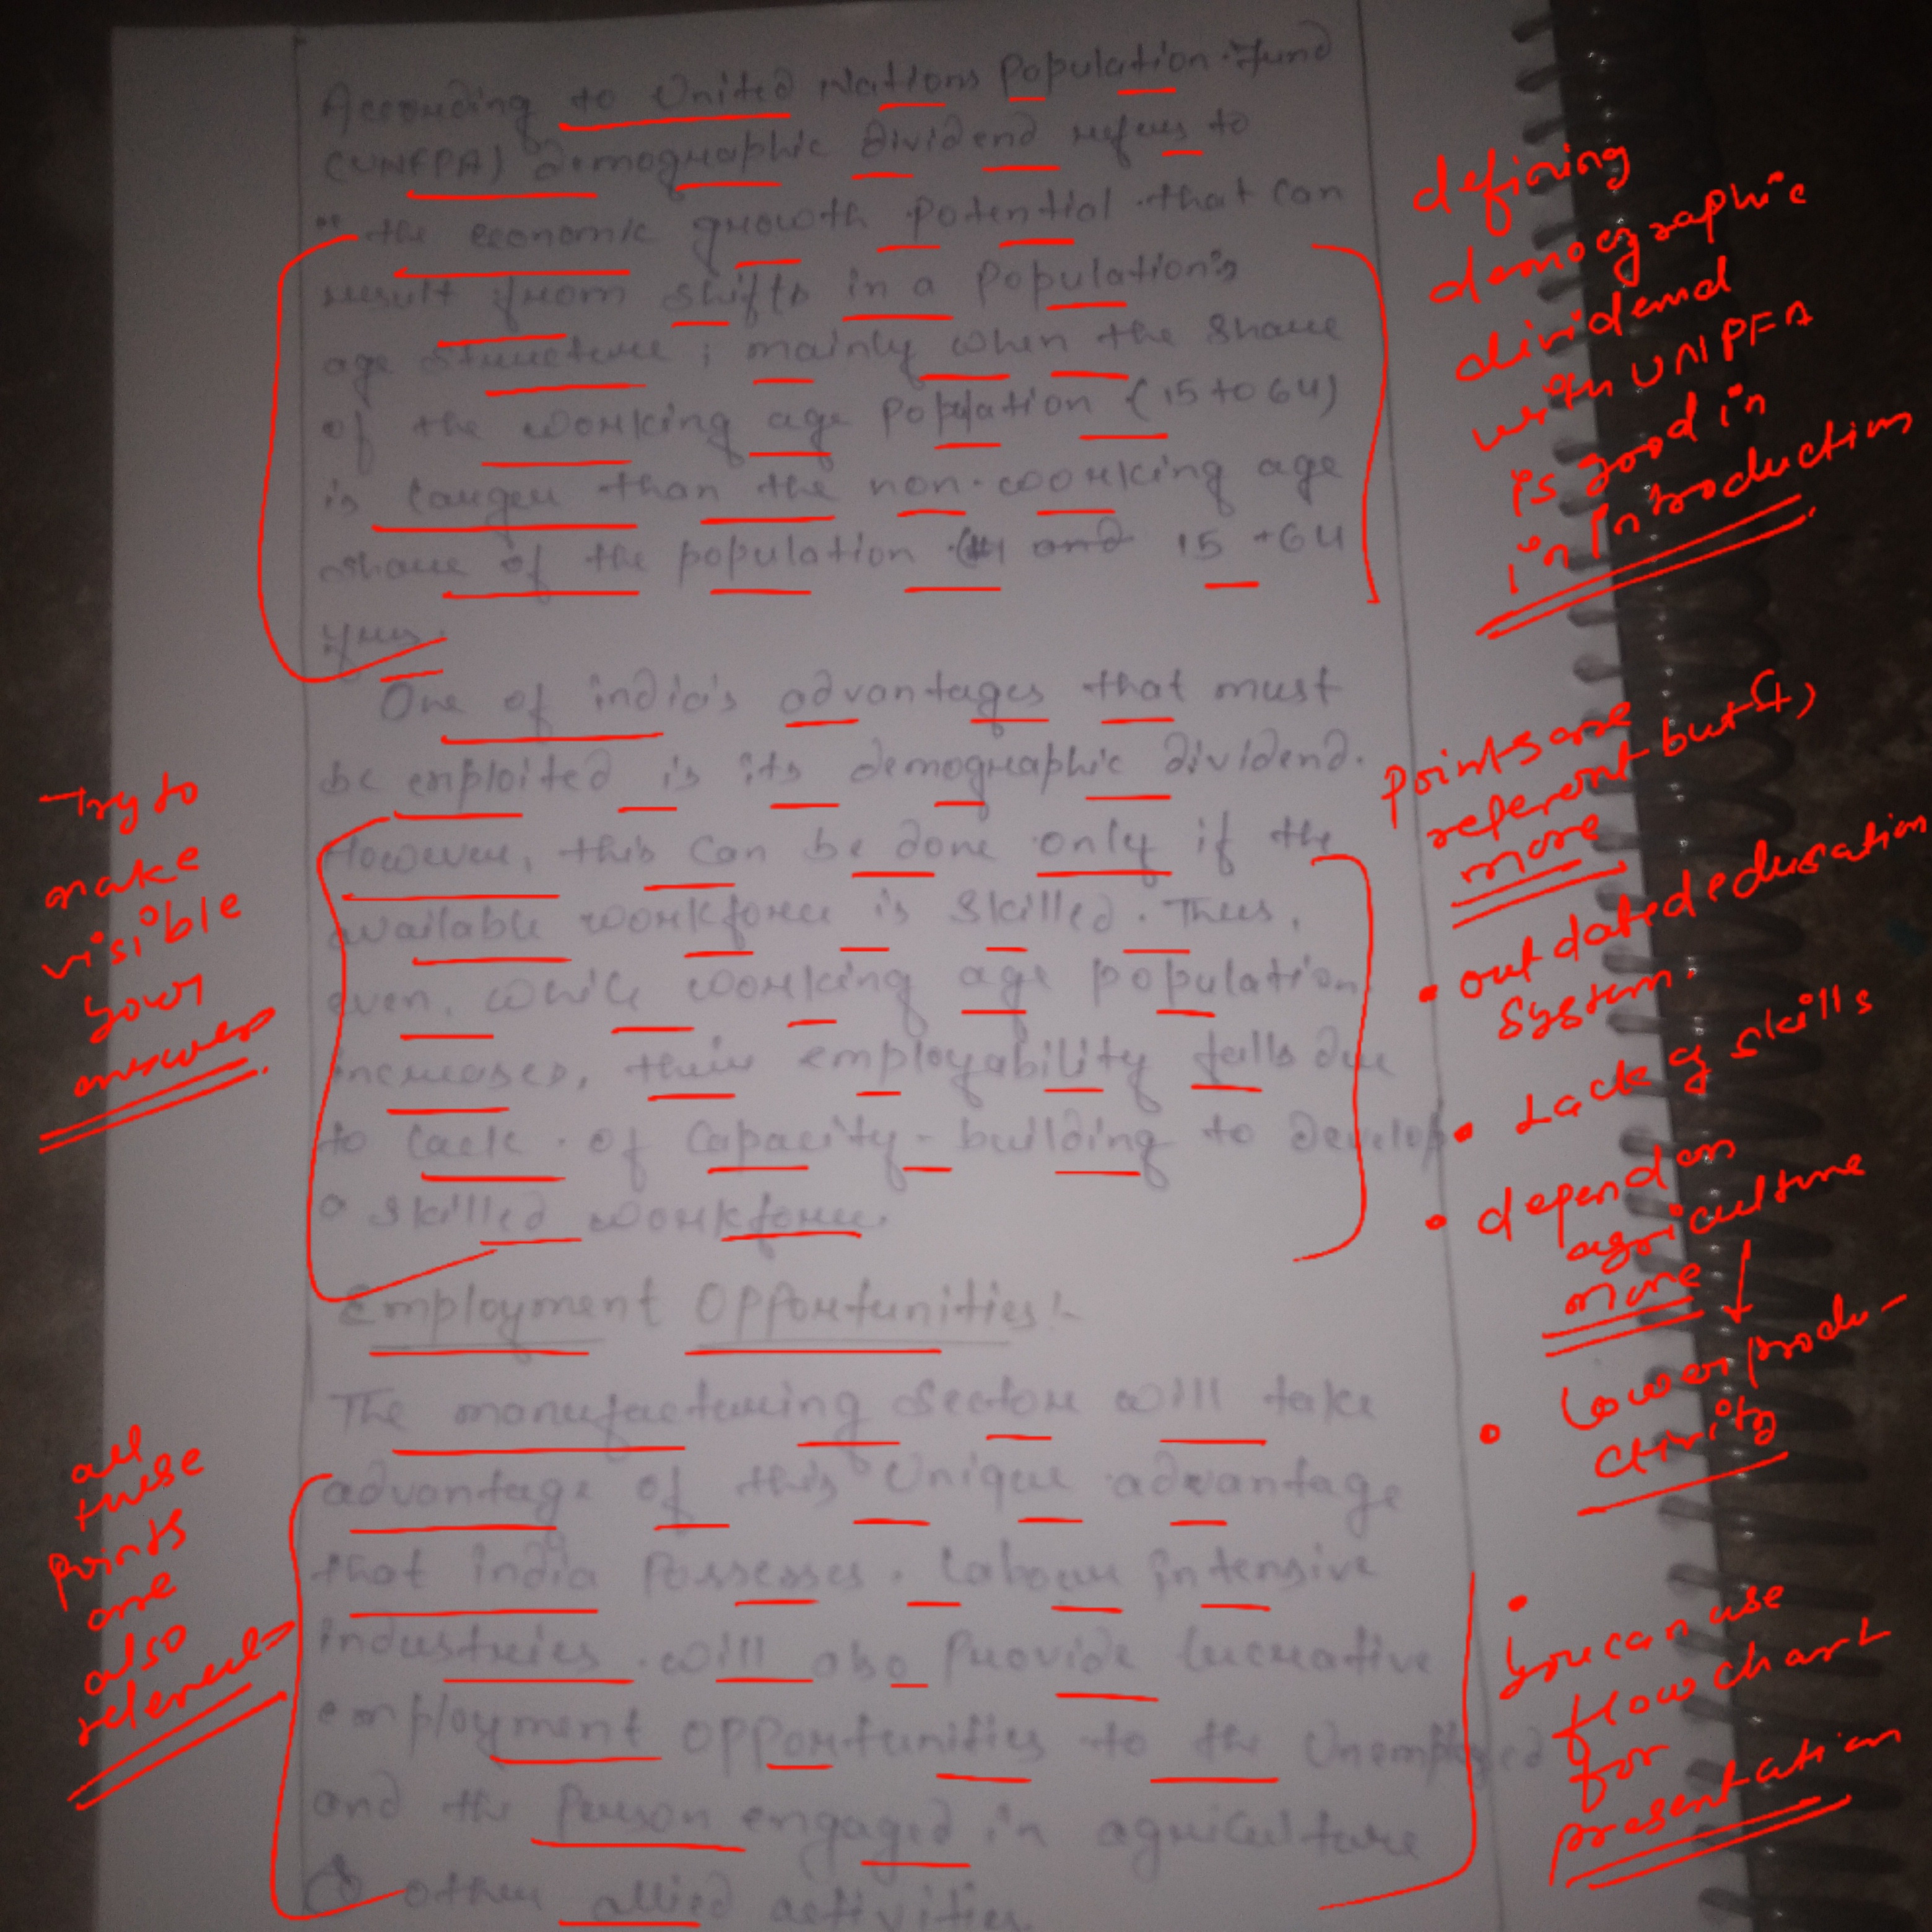 According to United Nations Population Fund
(UNFPA) Demographic Dividend refers to
" the economic growth potential that can
result from shifts in a population's
age structure, mainly when the share
of the working age population (15 to 64)
is larger than the non-working age
share of the population 15 +64
One of india's advantages that must
be exploited is its demographic dividend.
However, this can be done only if the
available workforce is skilled. Thus,
even, while working age population
increases, their employability falls due
to lack of capacity-building to develop
a skilled workforce.
Employment Opportunities:-
The manufacturing sector will take
advantage of this unique advantage
that india Possesses. Labour intensive
industries will also Provide lucrative
employment opportunities to the Unemployed
and the Person engaged in agriculture
other allied activities.
defining
demographic
dividend
with UNPFA
is good in
in introduction
Points are
but
more
• outdated education
system.
• Lack of skills
• depend on
agriculture
more ↓
• Lower produ-
ctivity
• You can use
flow chart
for
presentation
Try to
make
visible
your
answer
all
these
points
are
also